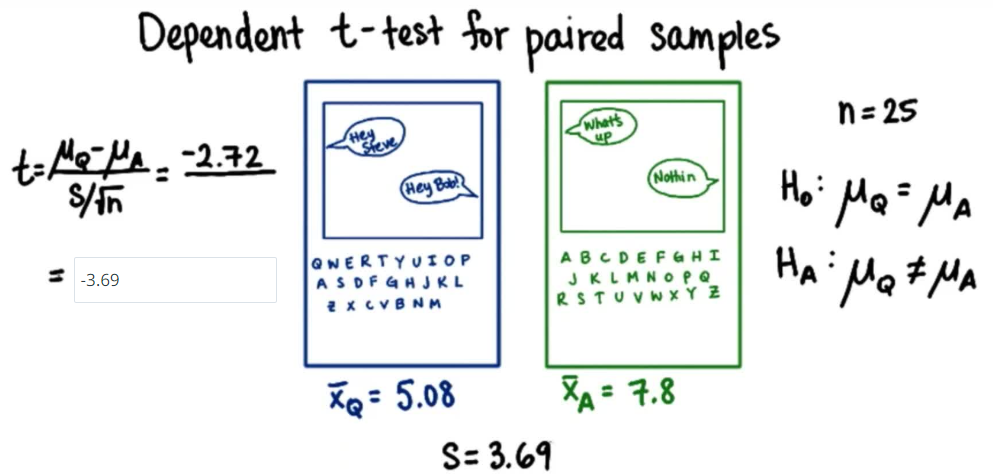 Dependent t-test for paired samples
t = μQ - μA / S/√n = -2.72
= -3.69
Hey Steve
Hey Bob!
Q W E R T Y U I O P
A S D F G H J K L
Z X C V B N M
x̄Q = 5.08
What's up
Nothin
A B C D E F G H I
J K L M N O P Q
R S T U V W X Y Z
x̄A = 7.8
S = 3.69
n = 25
H₀: μQ = μA
HA: μQ ≠ μA